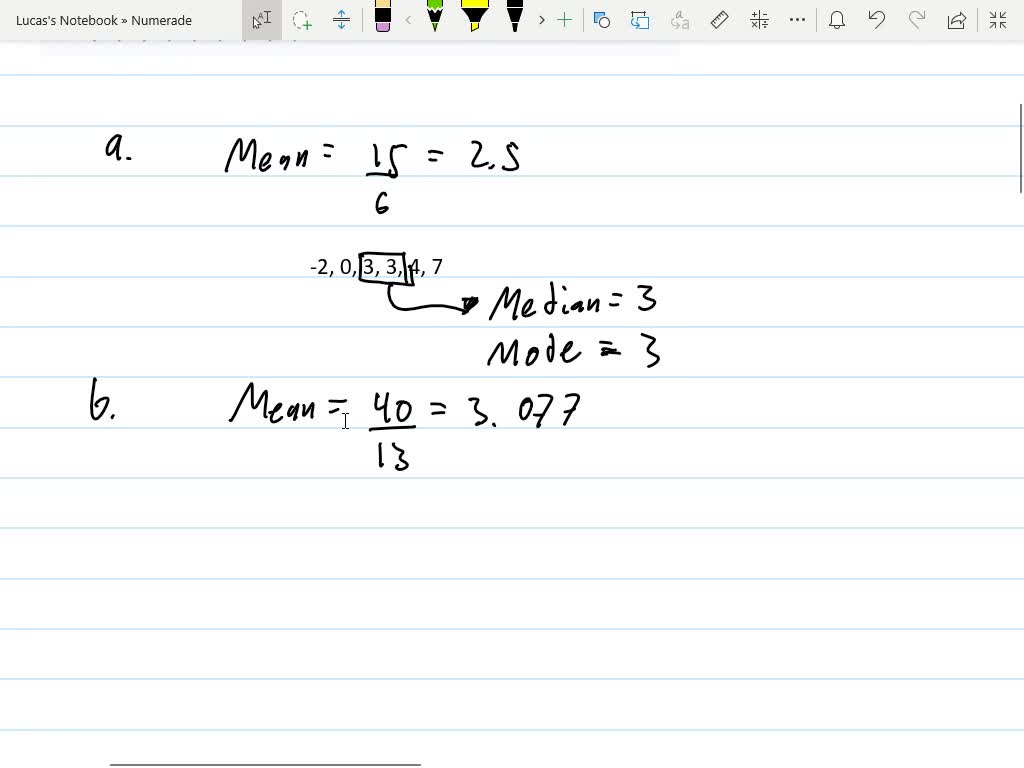 Lucas's Notebook » Numerade
a. Mean = 15/6 = 2.5
-2, 0, 3, 3, 4, 7
Median = 3
Mode = 3
b. Mean = 40/13 = 3.077